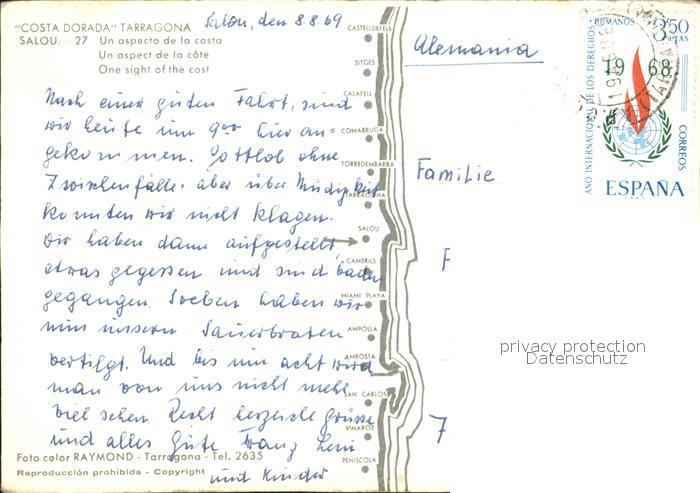 "COSTA DORADA" TARRAGONA
SALOU. - 27 Un aspecto de la costa
Un aspect de la côte
One sight of the cost
Salou, den 8.8.69
Nach einer guten Fahrt, sind
wir heute um 9oo hier an=
gekommen. Gottlob ohne
Zwischenfälle, aber über Müdigkeit
konnten wir nicht klagen.
Wir haben dann aufgestellt,
etwas gegessen und sind baden
gegangen. Soeben haben wir
nun unsern Sauerbraten
vertilgt. Und bis um acht wird
man von uns nicht mehr
viel sehen. Recht herzliche Grüsse
und alles Gute Franz Leni
und Kinder
Foto color RAYMOND - Tarragona - Tel. 2635
Reproducción prohibida - Copyright
CASTELLDEFELS
SITGES
CALAFELL
COMARRUGA
TORREDEMBARRA
TARRAGONA
SALOU
CAMBRILS
MIAMI PLAYA
AMPOLLA
AMPOSTA
SAN CARLOS
VINAROZ
PEÑISCOLA
Alemania
Familie
F
7
AÑO INTERNACIONAL DE LOS DERECHOS HUMANOS
3,50
PTAS
1968
CORREOS
ESPAÑA
privacy protection
Datenschutz